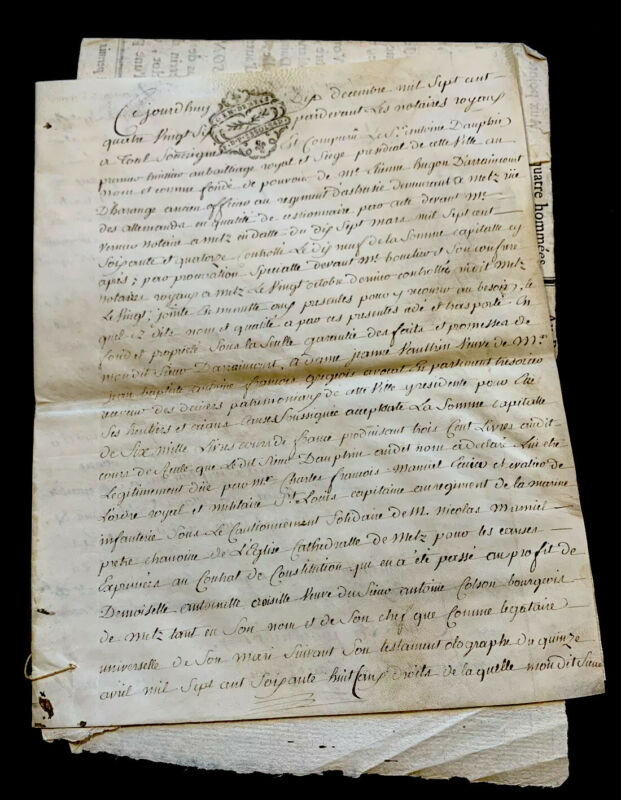 Ce jourdhuy dix decembre mil Sept cent
quatre Vingt pardevant Les notaires royaux
a Toul Soussignés Est Comparu Le Sr. antoine Dauphin
premier huissier au bailliage royal et Siege presidial de cette Ville au
nom et comme fondé de pouvoir de Mr. Etienne hugon Darraincourt
Dharange ancien officier au regiment demeurant a Metz rüe
des allemands en qualité de cessionnaire par acte devant Me.
Vernier notaire a Metz en datte du dix Sept mars mil Sept cent
Soixante et quatorze Controllé Le dix neuf de la Somme capitalle cy
après; par procuration Specialle devant Me. bouchez et Son confrere
notaires royaux a Metz Le Vingt octobre dernier controllée audit Metz
Le Vingt; jointe En minutte aux presentes pour y recourir au besoin; le
quel ez dits nom et qualité a par ces presentes cédé et transporté En
fond et propriété Sous la Seulle garantie des faits et promesses de
mondit Sieur Darraincourt, a dame jeanne Vaultrin Veuve de Mr.
jean baptiste antoine françois avocat En parlement tresorier
receveur des deniers patrimoniaux de cette Ville presidente pour Elle
Ses heritiers et aïans Cause Soussignée acceptante La Somme capitalle
de Six mille Livres cours de france produisant trois Cent Livres audit
cours de Rente que Ledit Sieur Dauphin audit nom a declaré Lui etre
Legitimement düe par Mr. Charles François Manuel Ecuier et cvalier de
Lordre royal et militaire St. Louis capitaine au regiment de la marine
infanterie Sous Le Cautionnement Solidaire de M. Nicolas Manuel
pretre chanoine de L'Eglise Cathedralle de Metz pour les causes
Exprimées au Contrat de Constitution qui en a été passé au profit de
Demoiselle antoinette croiselle Veuve du Sieur antoine Colson bourgeois
de Metz tant en Son nom et de Son chef que Comme legataire
universelle de Son mari Suivant Son testament olographe du quinze
avril mil Sept cent Soixante huit aux droits de la quelle mondit Sieur
quatre hommées